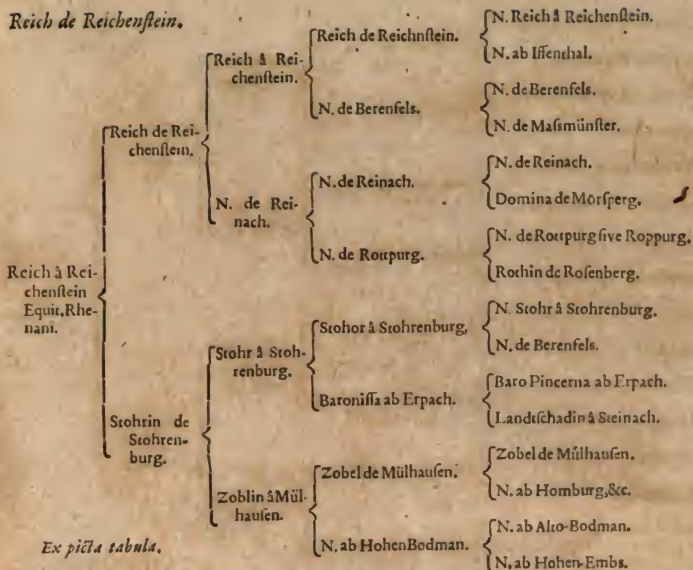 Reich de Reichenſtein.
Reich à Rei-
chenſtein
Equit, Rhe-
nani.
Reich de Rei-
chenſtein.
Stohrin de
Stohren-
burg.
Reich à Rei-
chenſtein.
N. de Rei-
nach.
Stohr à Stoh-
renburg.
Zoblin à Mül-
hauſen.
Reich de Reichnſtein.
N. de Berenfels.
N. de Reinach.
N. de Rottpurg.
Stohor à Stohrenburg,
Baroniſſa ab Erpach.
Zobel de Mülhauſen.
N. ab HohenBodman.
N. Reich à Reichenſtein.
N. ab Iffenthal.
N. de Berenfels.
N. de Maſmünſter.
N. de Reinach.
Domina de Mörſperg.
N. de Rottpurg ſive Roppurg.
Rothin de Roſenberg.
N. Stohr à Stohrenburg.
N. de Berenfels.
Baro Pincerna ab Erpach.
Landtſchadin à Steinach.
Zobel de Mülhauſen.
N. ab Homburg, &c.
N. ab Alto-Bodman.
N. ab Hohen-Embs.
Ex picta tabula.